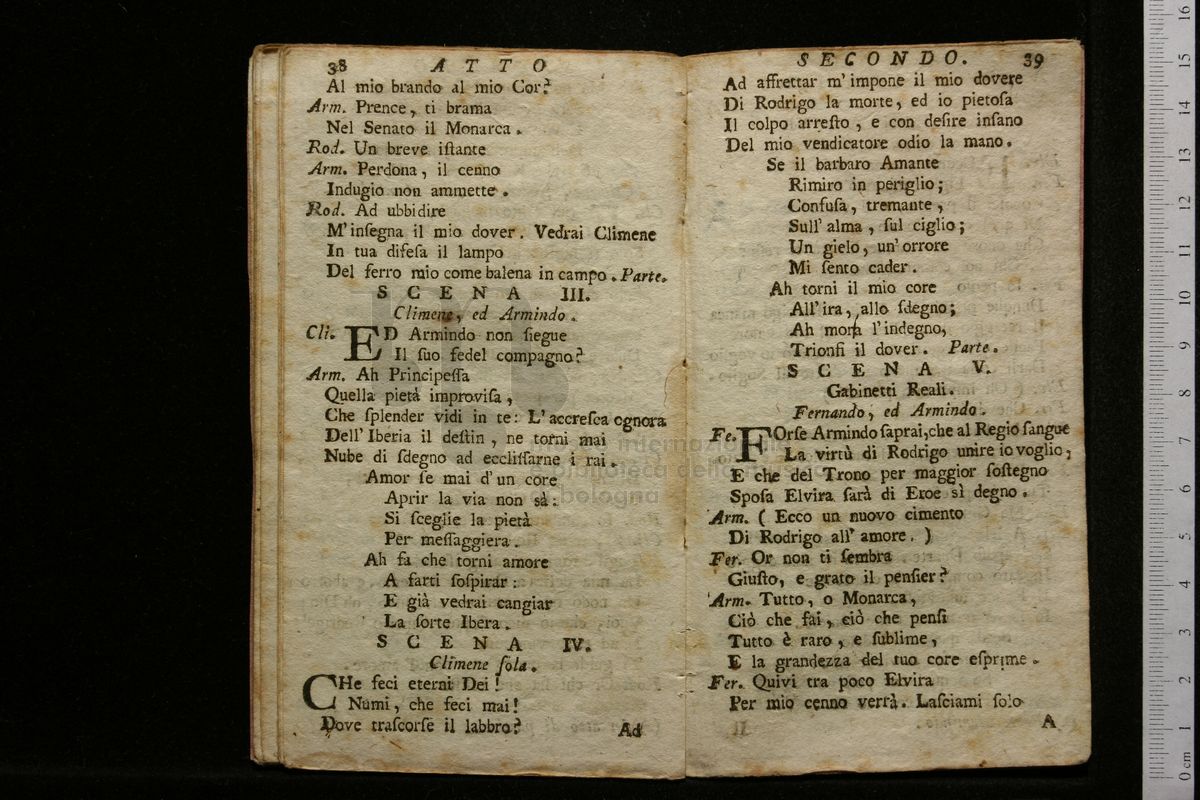 38 ATTO
Al mio brando al mio Cor?
Arm. Prence, ti brama
Nel Senato il Monarca.
Rod. Un breve iſtante
Arm. Perdona, il cenno
Indugio non ammette.
Rod. Ad ubbidire
M'inſegna il mio dover. Vedrai Climene
In tua difeſa il lampo
Del ferro mio come balena in campo. Parte.
SCENA III.
Climene, ed Armindo.
Cli. ED Armindo non ſiegue
Il ſuo fedel compagno?
Arm. Ah Principeſſa
Quella pietà improviſa,
Che ſplender vidi in te: L'accreſca ognora
Dell'Iberia il deſtin, ne torni mai
Nube di ſdegno ad eccliſſarne i rai.
Amor ſe mai d'un core
Aprir la via non sà:
Si ſceglie la pietà
Per meſſaggiera.
Ah fa che torni amore
A farti ſoſpirar:
E già vedrai cangiar
La ſorte Ibera.
SCENA IV.
Climene ſola.
CHe feci eterni Dei!
Numi, che feci mai!
Dove traſcorſe il labbro?
Ad
SECONDO. 39
Ad affrettar m'impone il mio dovere
Di Rodrigo la morte, ed io pietoſa
Il colpo arreſto, e con deſire inſano
Del mio vendicatore odio la mano.
Se il barbaro Amante
Rimiro in periglio;
Confuſa, tremante,
Sull'alma, ſul ciglio;
Un gielo, un'orrore
Mi ſento cader.
Ah torni il mio core
All'ira, allo ſdegno;
Ah mora l'indegno,
Trionfi il dover. Parte.
SCENA V.
Gabinetti Reali.
Fernando, ed Armindo.
Fe. FOrſe Armindo ſaprai, che al Regio ſangue
La virtù di Rodrigo unire io voglio;
E che del Trono per maggior ſoſtegno
Spoſa Elvira ſarà di Eroe sì degno.
Arm. (Ecco un nuovo cimento
Di Rodrigo all'amore.)
Fer. Or non ti ſembra
Giuſto, e grato il penſier?
Arm. Tutto, o Monarca,
Ciò che fai, ciò che penſi
Tutto è raro, e ſublime,
E la grandezza del tuo core eſprime.
Fer. Quivi tra poco Elvira
Per mio cenno verrà. Laſciami ſolo
A